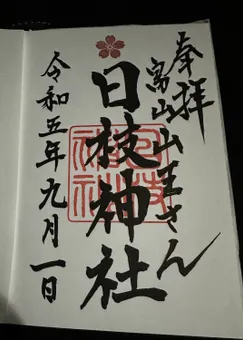 奉拝
富山山王さん
日枝神社
令和五年九月一日